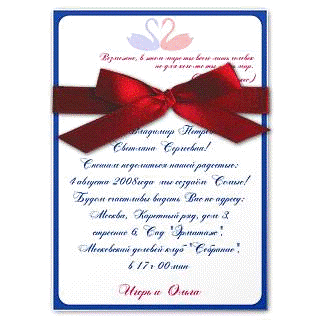 Возможно, в этом мире ты всего лишь человек
но для кого-то ты весь мир.
Владимир Петров
Светлана Сергеевна!
Спешим поделиться нашей радостью:
4 августа 2008года мы создаём Семью!
Будем счастливы видеть Вас по адресу:
Москва, Каретный ряд, дом 3,
строение 6, Сад "Эрмитаж",
Московский деловой клуб "Собрание",
в 17 ч 00 мин
Игорь и Ольга